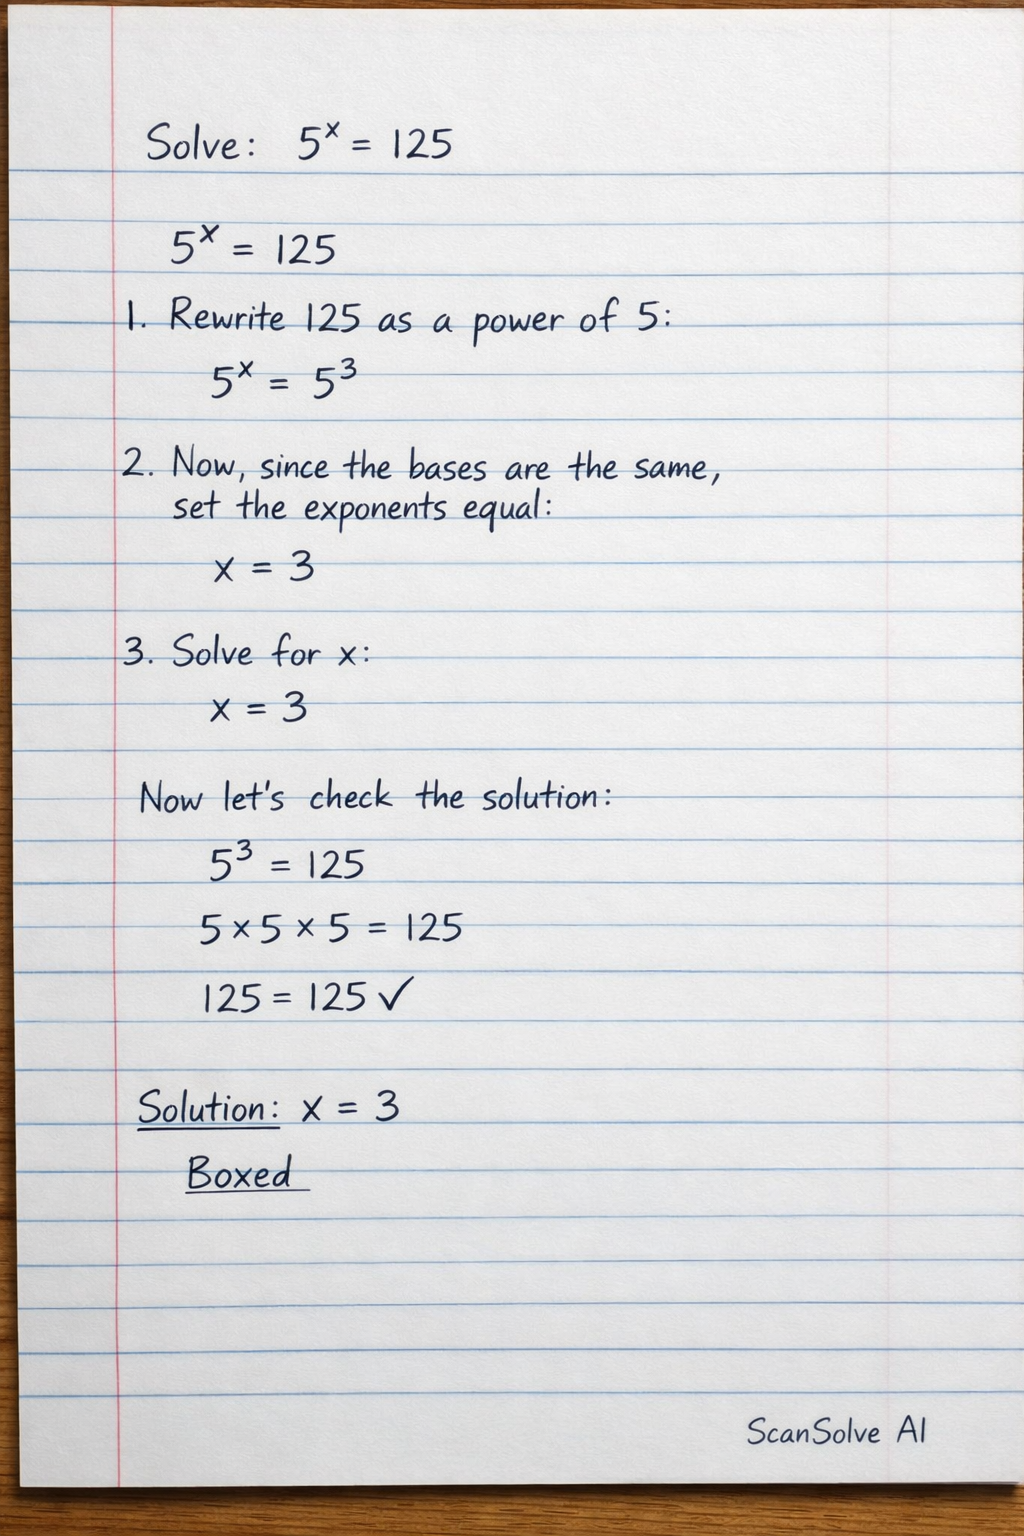 Solve: 5ˣ = 125
5ˣ = 125
1. Rewrite 125 as a power of 5:
5ˣ = 5³
2. Now, since the bases are the same,
set the exponents equal:
x = 3
3. Solve for x:
x = 3
Now let's check the solution:
5³ = 125
5 × 5 × 5 = 125
125 = 125 ✓
Solution: x = 3
Boxed
ScanSolve AI